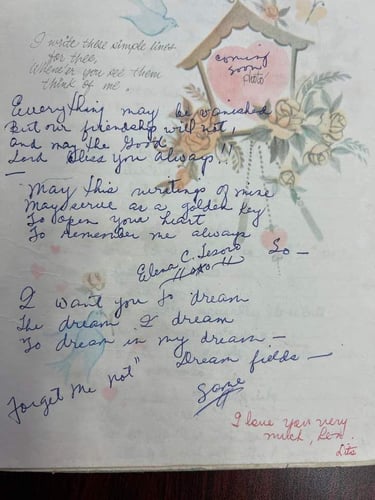 I write these simple lines
for thee,
Whene'er you see them
think of me.
coming
soon
Photo
Everything may be vanished
But our friendship will not,
and may the Good
Lord bless you always!!
May this writings of mine
May serve as a golden key
To open your heart
To remember me always
Elena C. Tesoro
So —
I want you to dream
The dream I dream
To dream in my dream —
Dream fields —
Forget me not"
Same
I love you very
much, Len.
Lits